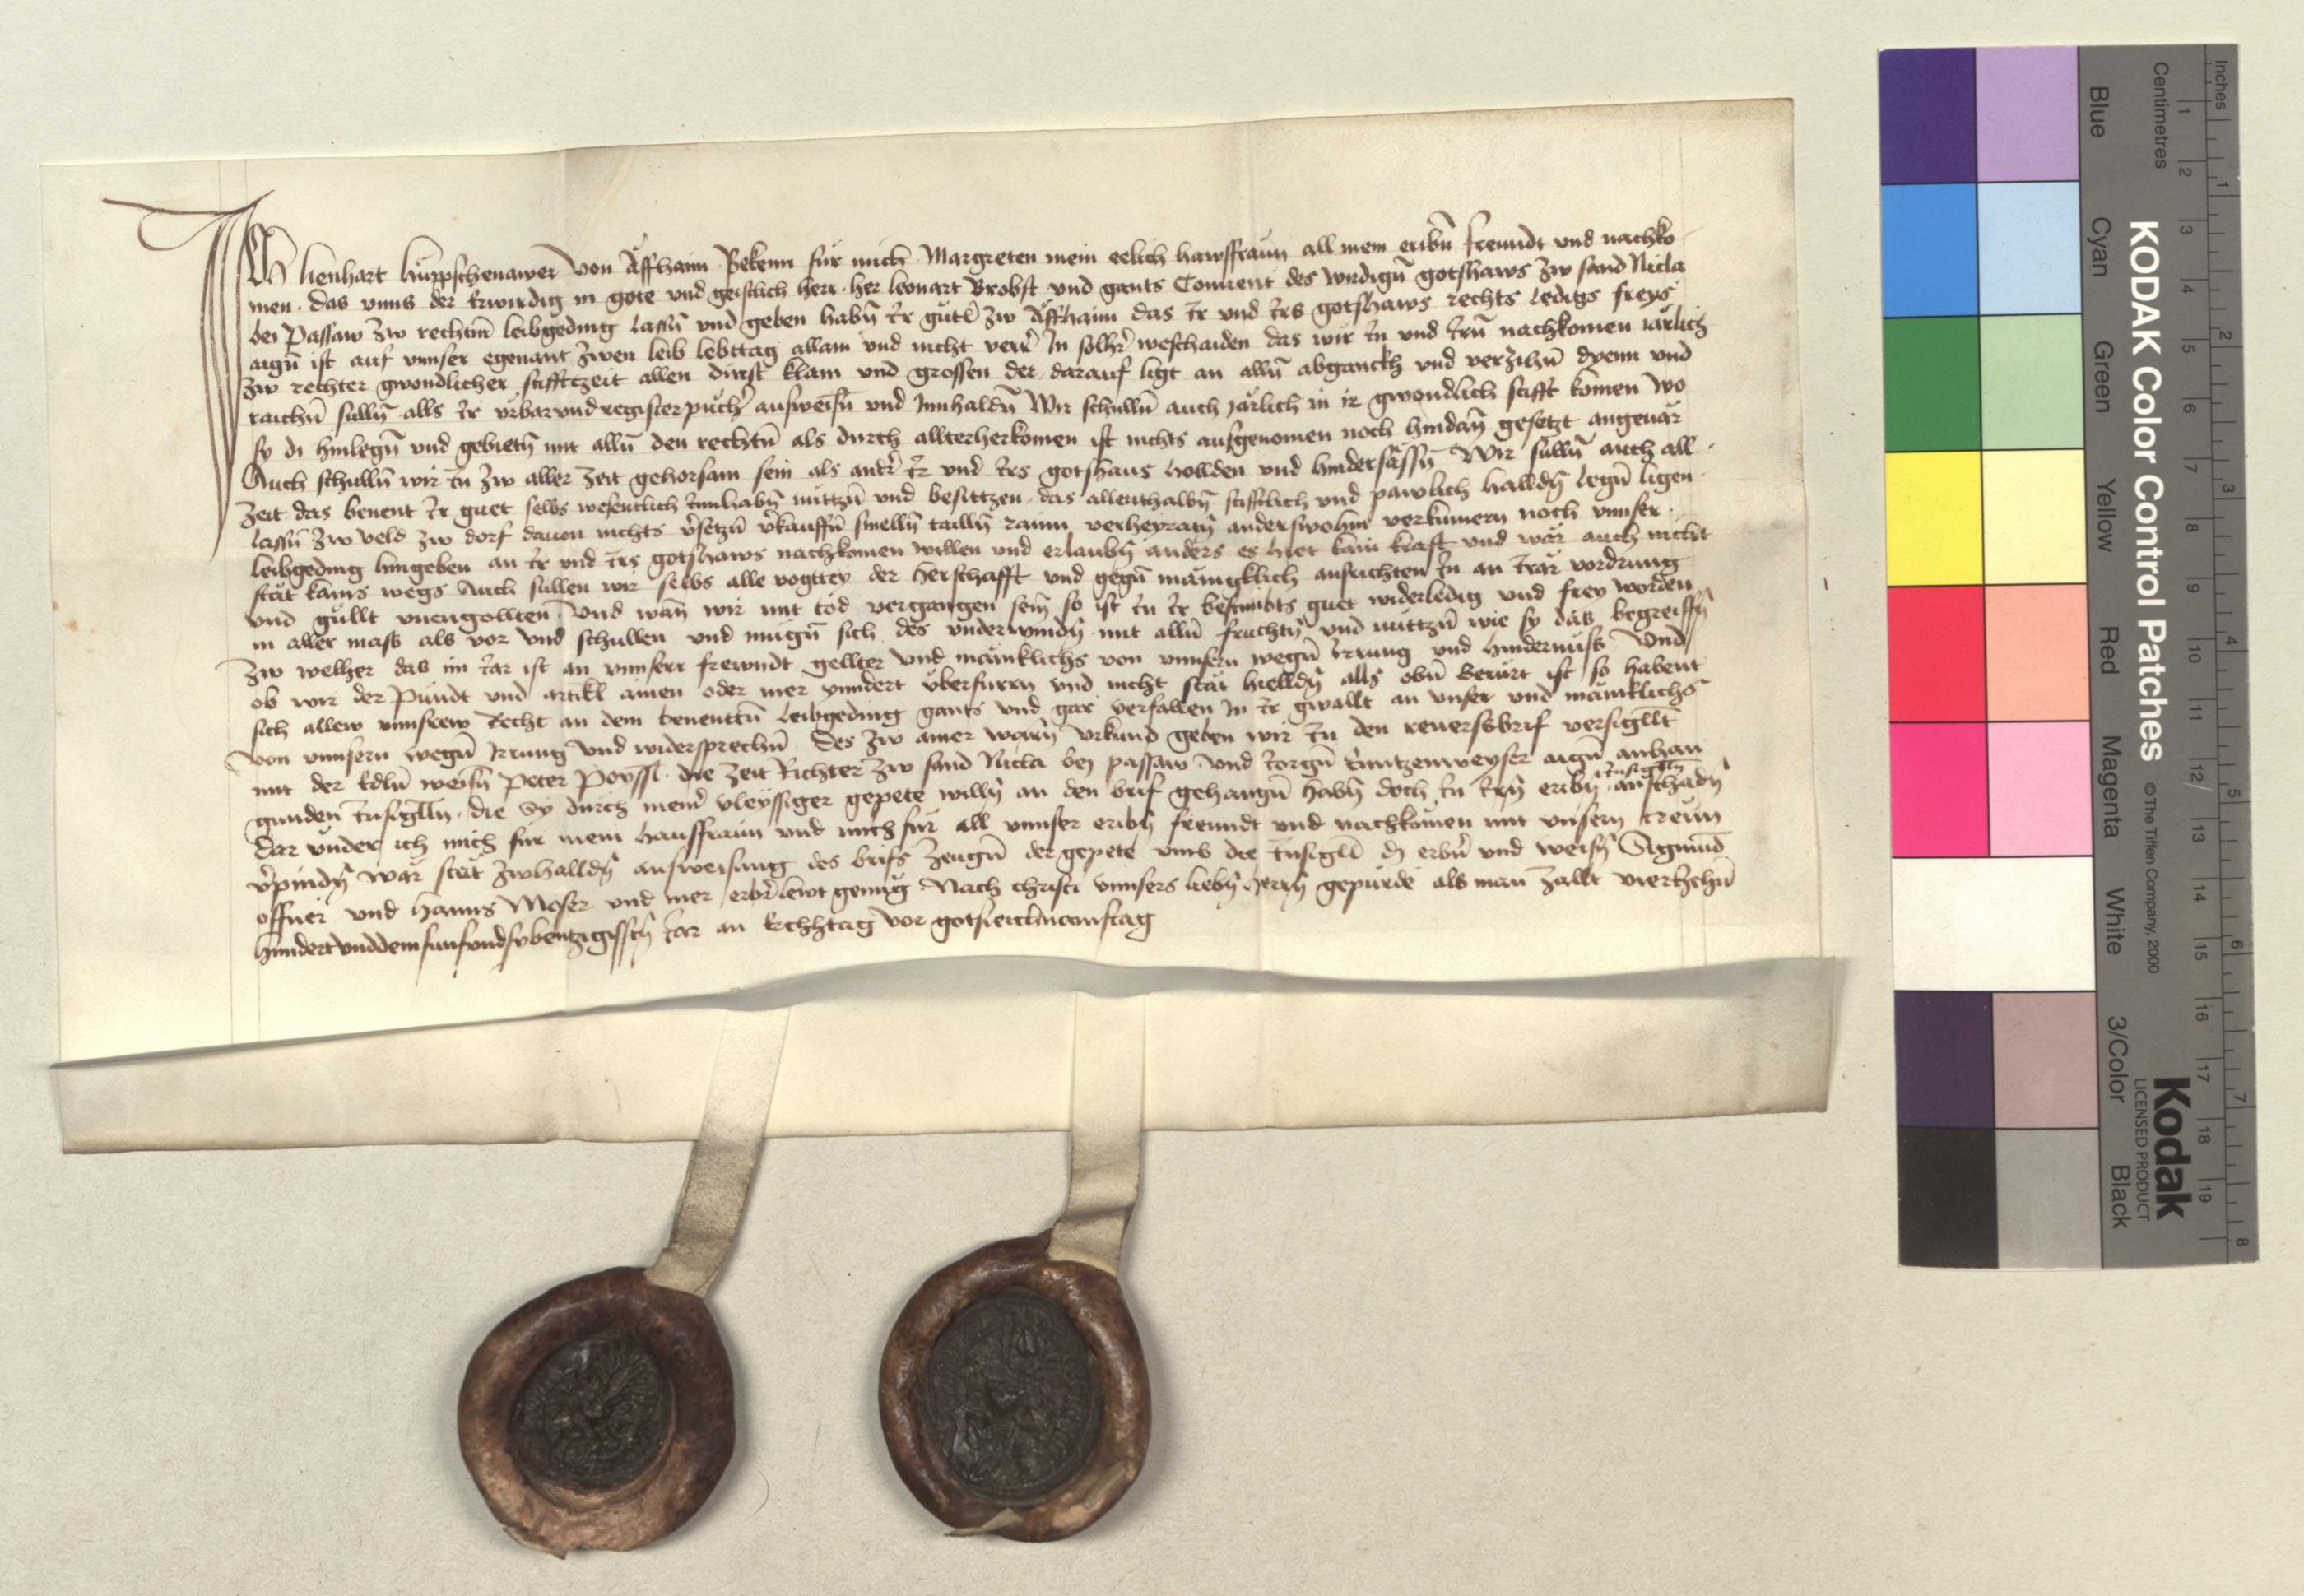 Ich lienhart hüppschenawer von Äffhaim Bekenn für mich Margreten mein eelich hawsfrauͤn all mein eribn̄ freundt vnd nachko
men · das vnns der Erwirdig in gote vnd geistlich herr · her leonart Brobst vnd gants Conuent des wirdign̄ gotshaws zw sand Nicla
bei Passaw zw rechtm̄ leibgeding lassn̄ vnd geben habn̄ Ir guͤte zw Äffhaim das Ir vnd Irs gotshaws rechts ledigs freys
aign̄ ist auf vnnser egenant zwen leib lebttag allain vnd nicht verr̄ In solhr̄ weschaiden das wir In vnd Irn̄ nachkomen iärlich
zw rechter gwondlicher stifftzeit allen dinst klain vnd grossen der darauf ligt an alln̄ abganckh vnd verzihn̄ dyenn vnd
raichn̄ sulln̄ alls Ir vrbar vnd register puͤcher ausweisn̄ vnd Innhaldn̄ Wir schulln̄ auch Järlich in ir gwondlich stifft komen wo
sy di hinlegn̄ vnd gebietn̄ mit alln̄ den rechtn̄ als durch allterherkomen ist nichts ausgenomen noch hindan̄ gesetzt angeuär
Auch schulln̄ wir In zw aller zeit gehorsam sein als andr̄ Ir vnd Irs gotshaus hollden vnd hindersässn̄ Wir sulln̄ auch all ·
zeit das benent Ir guet selbs wesentlich Innhabn̄ nuttzn̄ vnd besittzen · das allenthalbn̄ stifftlich vnd pawlich halldn̄ legn̄ ligen ·
lassn̄ zw veld zw dorf dauon nichts v̄setzn̄ v̄kauffn̄ smelln̄ tailln̄ raim verheyratn̄ anderswohin verkumern noch vnnser ·
leibgeding hingeben an Ir vnd Irs gotshaws nachkomen willen vnd erlaubn̄ anders es hiet kain kraft vnd wär auch nicht
stät kains wegs Auch sullen wir selbs alle vogttey der herschafft vnd gegn̄ mäinigklich ausrichten In an Irär vordrung
vnd güllt vnengollten Vnd wan̄ wir mit tod vergangen sein̄ so ist In Ir bestimbts guet widerledig vnd frey worden
in aller mass als vor vnd schullen vnd mugn̄ sich des vnderwindn̄ mit alln̄ fruchtn̄ vnd nuttzn̄ wie sy das begreiffn̄
zw welher das im Iar ist an vnnserr frewndt gellter vnd mänklichs von vnnsern wegn̄ Irrung vnd hindernuss Vnd
ob wir der puͤndt vnd artikl ainen oder mer vnndert vͤberfurrn vnd nicht stät hielldn̄ alls obn̄ Beruͤrt ist so habent
sich allew vnnsrew Recht an dem benenttn̄ leibgeding gants vnd gar verfallen In Ir gwallt an vnser vnd mäniklichs
von vnnsern wegn̄ Irrung vnd widersprechn̄ Des zw ainer warn̄ vrkund geben wir In den reuersbrif versigllt
mit der Edln̄ weisn̄ Peter Poyssl die zeit Richter zw sand Nicla bey passaw vnd Iorgn̄ aign̄ anhan
gunden Insiglln̄ · die Sy durch meinr̄ vleyssiger gepete willn̄ an den brif gehangn̄ habn̄ doch In Irn̄ eribn̄ Insiglln̄ an schadn̄
Dar vnder ich mich für mein hausfraun vnd mich für all vnnser eribn̄ freundt vnd nachkomen mit vnsern treun
v̄pindn̄ war stät zwhalldn̄ ausweisung des brifs zeugn̄ der gepete vmb die Insigl der erbn̄ vnd weisn̄ Sigmund
offner vnd Hanns Moser vnd mer erbr̄ lewt genug Nach christi vnnsers liebn̄ herrn̄ gepurde als man zallt viertzehn̄
hundert vnd dem funfvndsybentzigisstn̄ Iar an Erchtag vor gotsleichnamstag
KODAK Color Control Patches
© The Tiffen Company, 2000
Kodak
LICENSED PRODUCT
Inches 1 2 3 4 5 6 7 8
Centimetres 1 2 3 4 5 6 7 8 9 10 11 12 13 14 15 16 17 18 19
Blue Cyan Green Yellow Red Magenta White 3/Color Black